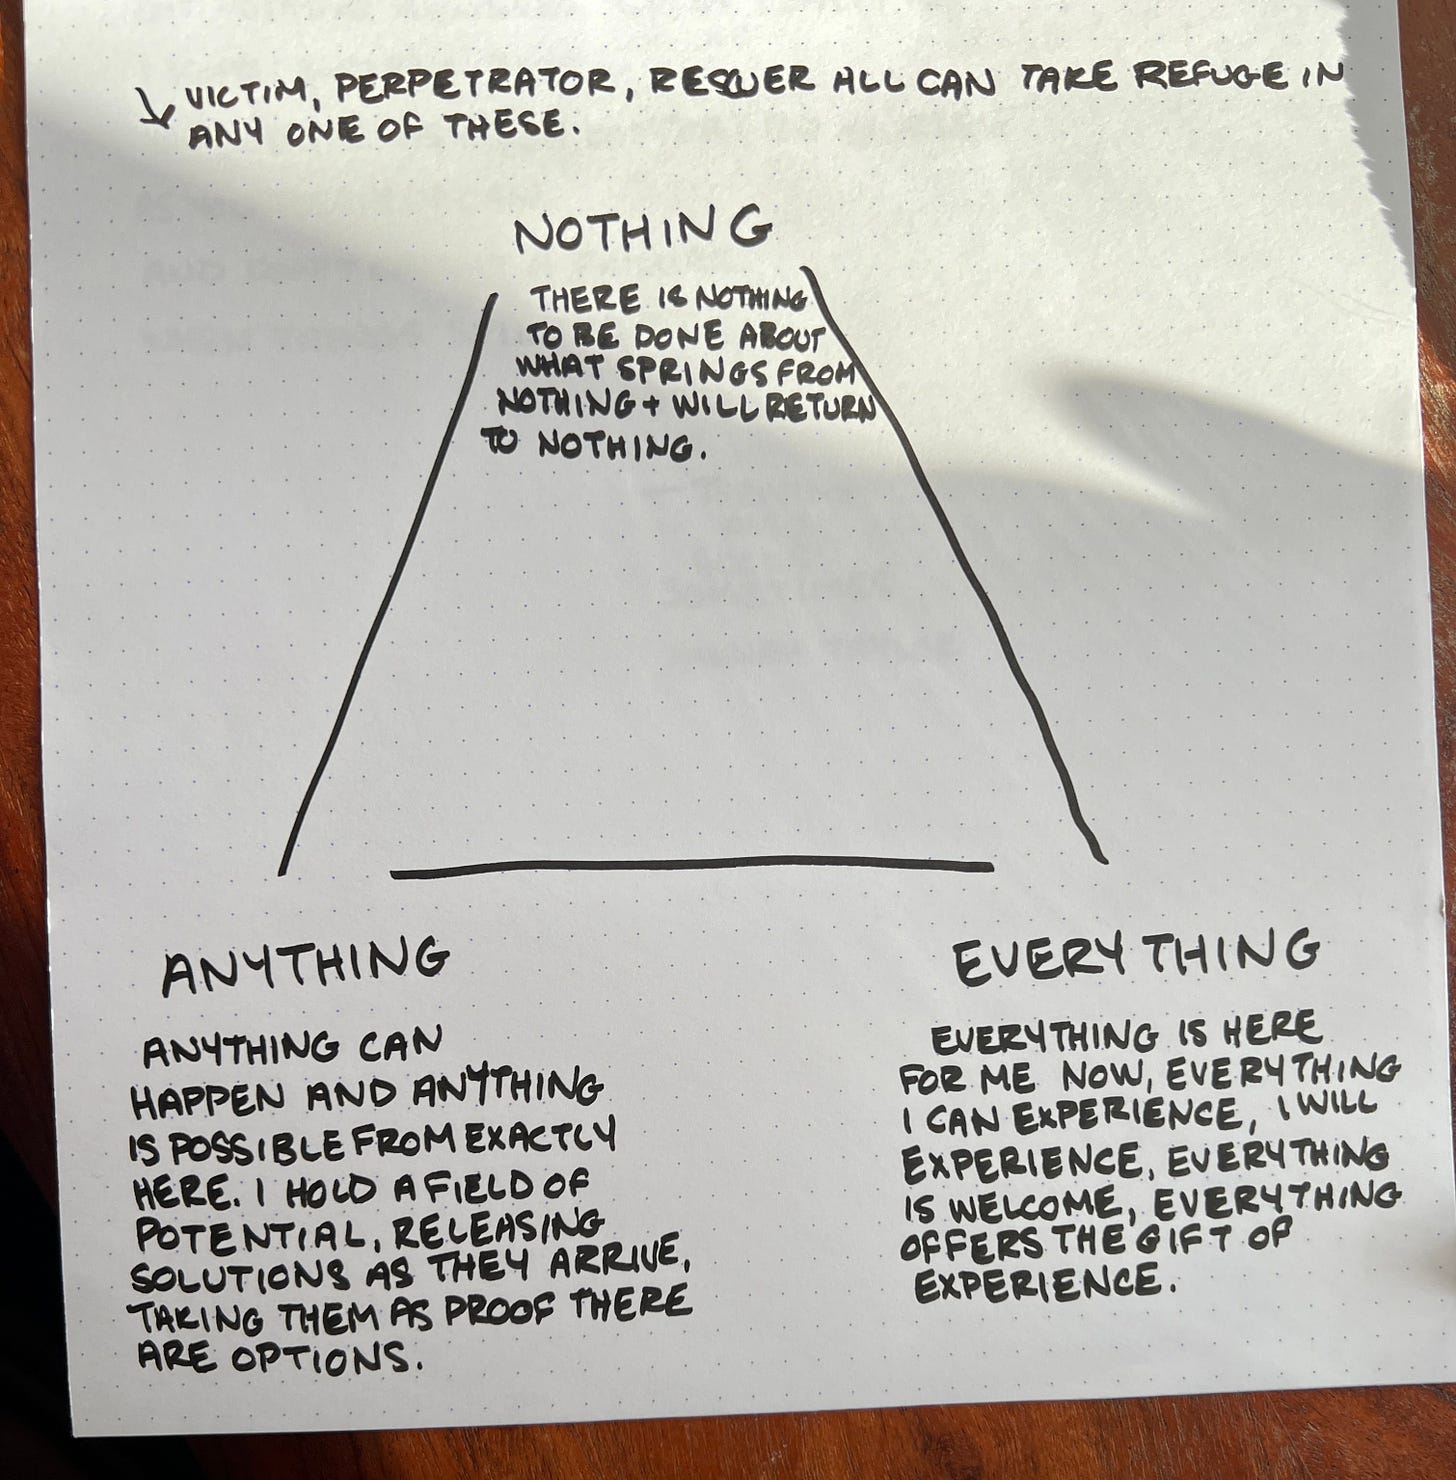 VICTIM, PERPETRATOR, RESCUER ALL CAN TAKE REFUGE IN
ANY ONE OF THESE.
NOTHING
THERE IS NOTHING
TO BE DONE ABOUT
WHAT SPRINGS FROM
NOTHING + WILL RETURN
TO NOTHING.
ANYTHING
ANYTHING CAN
HAPPEN AND ANYTHING
IS POSSIBLE FROM EXACTLY
HERE. I HOLD A FIELD OF
POTENTIAL, RELEASING
SOLUTIONS AS THEY ARRIVE,
TAKING THEM AS PROOF THERE
ARE OPTIONS.
EVERYTHING
EVERYTHING IS HERE
FOR ME NOW, EVERYTHING
I CAN EXPERIENCE, I WILL
EXPERIENCE, EVERYTHING
IS WELCOME, EVERYTHING
OFFERS THE GIFT OF
EXPERIENCE.